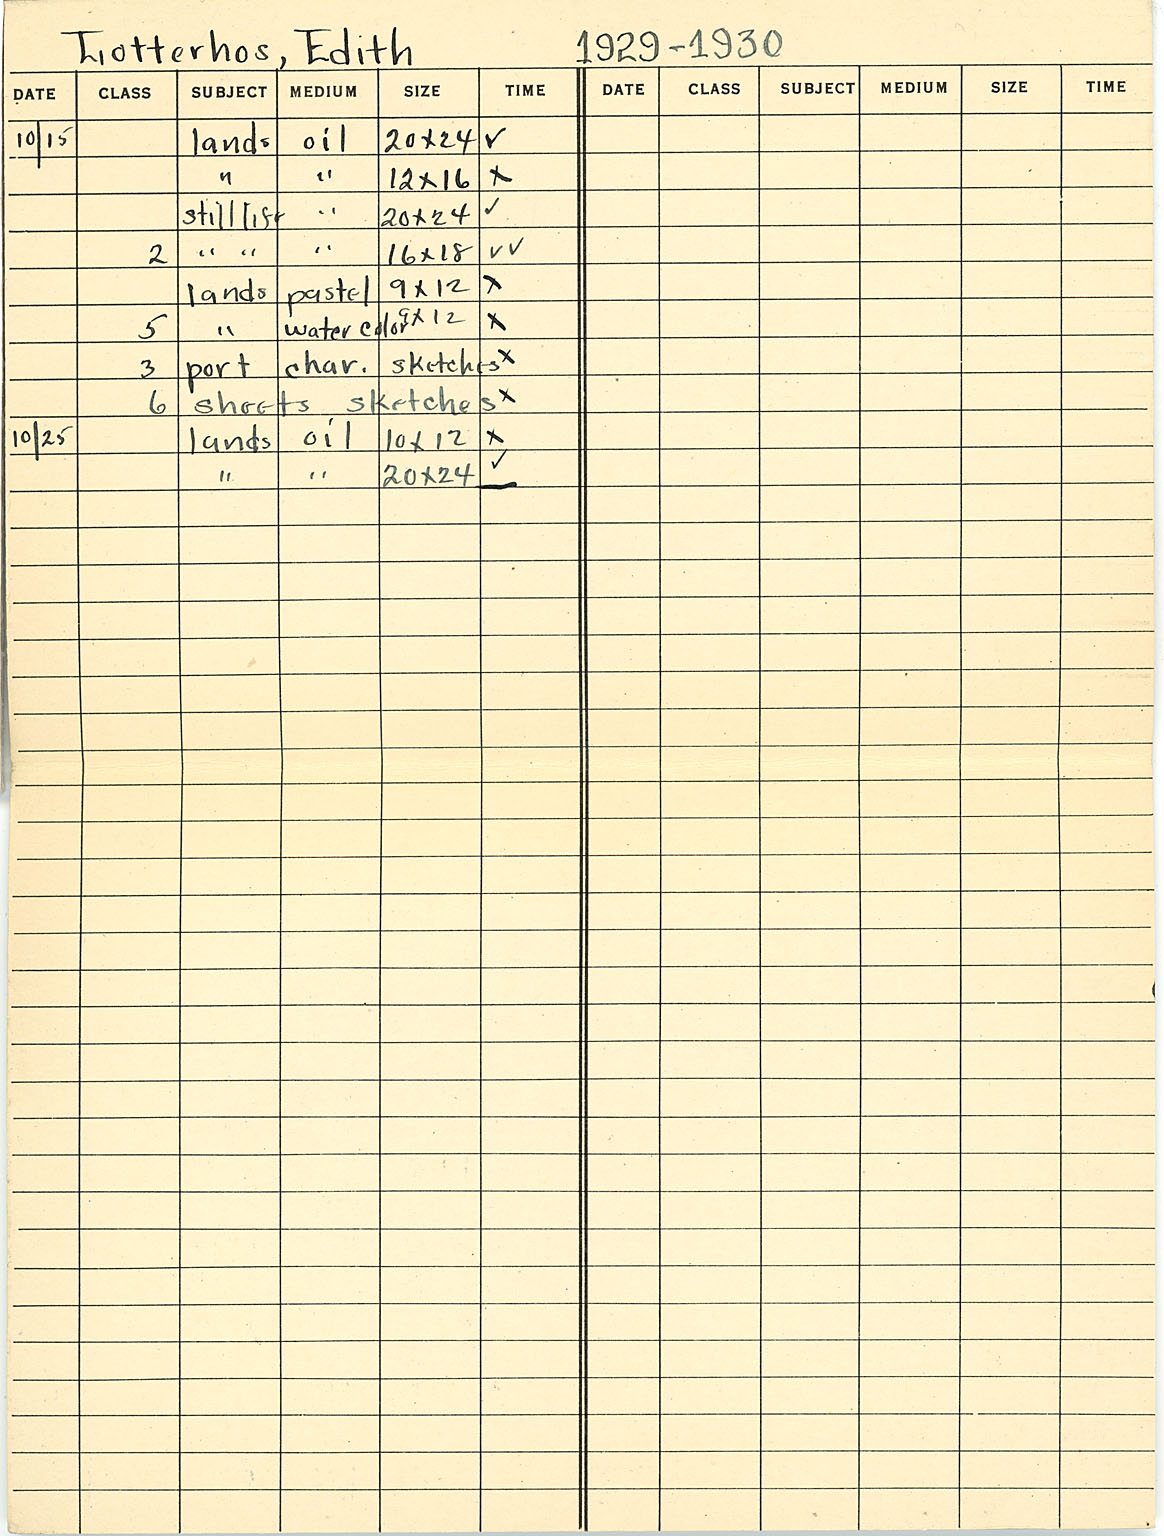 Lotterhos, Edith 1929-1930
DATE CLASS SUBJECT MEDIUM SIZE TIME DATE CLASS SUBJECT MEDIUM SIZE TIME
10/15 lands oil 20x24 ✓
" " 12x16 x
still life " 20x24 ✓
2 " " " 16x18 ✓✓
lands pastel 9x12 x
5 " water color 9x12 x
3 port char. sketches x
6 sheets sketches x
10/25 lands oil 10x12 x
" " 20x24 ✓